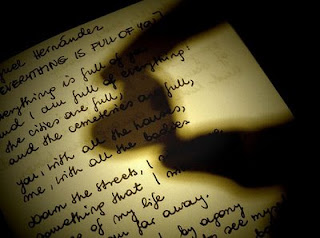 guel Hernández
EVERYTHING IS FULL OF YOU
everything is full of you
and I am full of everything:
the cities are full,
and the cemeteries are full,
you, with all the houses,
me, with all the bodies.
Down the streets, I
something that I
of my life
far away.
by agony
to see myself